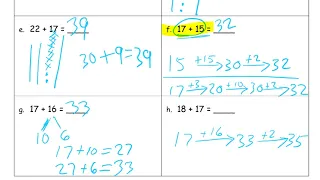 e. 22 + 17 = 39
30+9=39
f. 17 + 15 = 32
15 +15→ 30 +2→ 32
17 +3→ 20 +10→ 30 +2→ 32
g. 17 + 16 = 33
10 6
17+10=27
27+6=33
h. 18 + 17 = ____
17 +16→ 33 +2→ 35